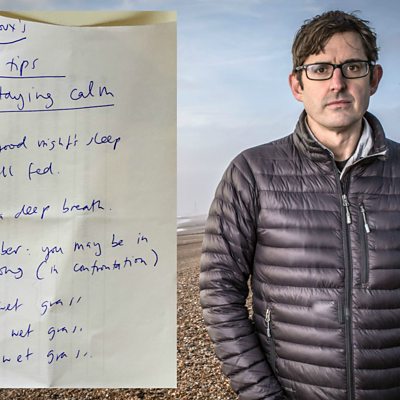 oux's
tips
taying calm
good night's sleep
ll fed.
a deep breath.
ber. you may be in
ong (in confrontation)
wet grass
wet grass
wet grass.